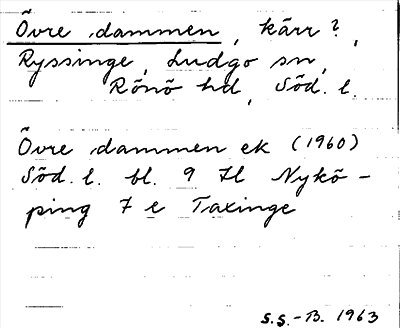 Övre dammen, kärr?,
Ryssinge, Ludgo sn,
Rönö hd, Söd. l.
Övre dammen ek (1960)
Söd. l. bl. 9 Il Nykö-
ping 7 e Taxinge
S.S.-B. 1963